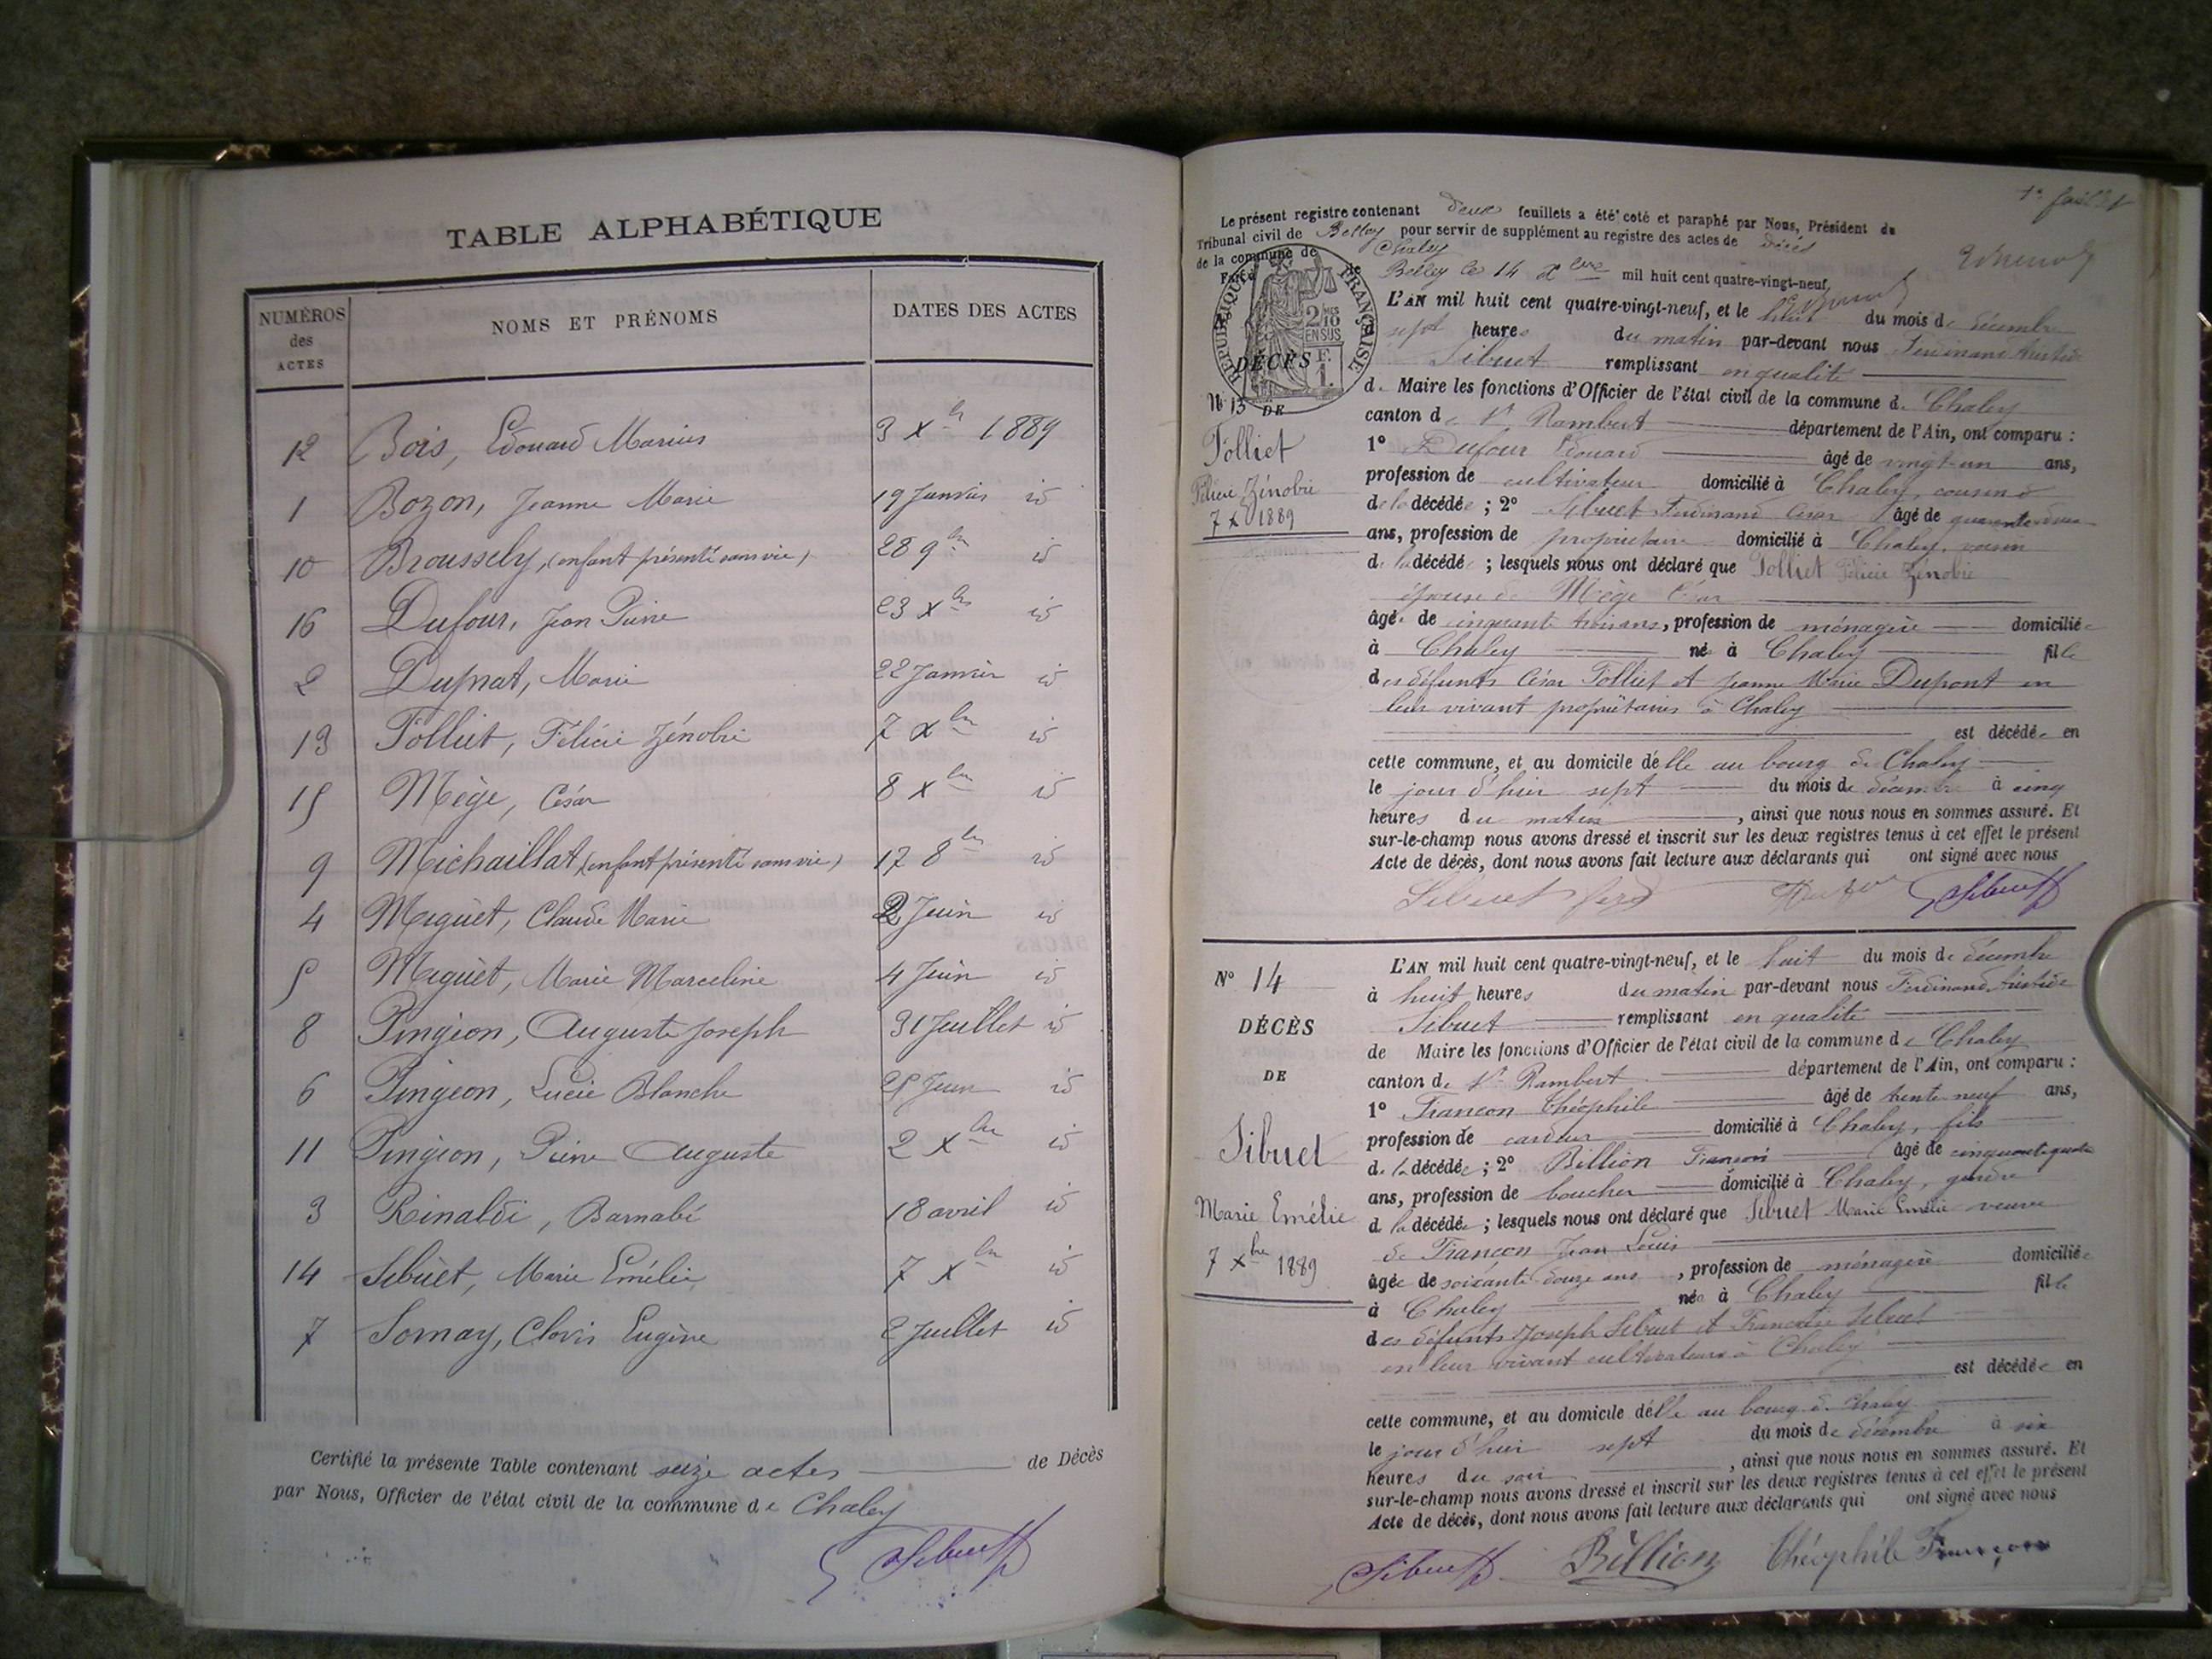 TABLE ALPHABÉTIQUE
NUMÉROS des ACTES
NOMS ET PRÉNOMS
DATES DES ACTES
12 Bois, Edouard Marius 3 Xbre 1889
1 Bozon, Jeanne Marie 19 Janvier id
10 Broussely, (enfant présenté sans vie) 28 9bre id
16 Dufour, Jean Pierre 23 Xbre id
2 Duprat, Marie 22 Janvier id
13 Folliet, Félicie Zénobie 7 Xbre id
15 Mège, César 8 Xbre id
9 Michaillat (enfant présenté sans vie) 17 8bre id
4 Miguet, Claude Marie 2 Juin id
5 Miguet, Marie Marceline 4 Juin id
8 Pingeon, Auguste Joseph 31 Juillet id
6 Pingeon, Lucie Blanche 25 Juin id
11 Pingeon, Pierre Auguste 2 Xbre id
3 Rinaldi, Barnabé 18 avril id
14 Sibuet, Marie Emélie 7 Xbre id
7 Sornay, Clovis Eugène 2 Juillet id
Certifié la présente Table contenant seize actes de Décès
par Nous, Officier de l'état civil de la commune de Chaley
Sibuet
Le présent registre contenant deux feuillets a été coté et paraphé par Nous, Président du
Tribunal civil de Belley pour servir de supplément au registre des actes de décès
de la commune de Chaley
Fait à Belley le 14 Xbre mil huit cent quatre-vingt-neuf,
RÉPUBLIQUE FRANÇAISE
2/10 EN SUS
F. 1.
L'AN mil huit cent quatre-vingt-neuf, et le huit du mois de décembre
sept heures du matin par-devant nous Ferdinand Aristide
Sibuet remplissant en qualité
de Maire les fonctions d'Officier de l'état civil de la commune de Chaley
canton de St Rambert département de l'Ain, ont comparu :
1° Dufour Edouard âgé de vingt-un ans,
profession de cultivateur domicilié à Chaley, cousin
de la décédée ; 2° Sibuet Ferdinand César âgé de
ans, profession de propriétaire domicilié à Chaley, voisin
de la décédée ; lesquels nous ont déclaré que Folliet Félicie Zénobie
épouse de Mège César
âgée de cinquante trois ans, profession de ménagère domiciliée
à Chaley née à Chaley fille
des défunts César Folliet et Jeanne Marie Dupont en
leur vivant propriétaires à Chaley
est décédée en
cette commune, et au domicile d'elle au bourg de Chaley
le jour d'hier sept du mois de décembre à cinq
heures du matin, ainsi que nous nous en sommes assuré. Et
sur-le-champ nous avons dressé et inscrit sur les deux registres tenus à cet effet le présent
Acte de décès, dont nous avons fait lecture aux déclarants qui ont signé avec nous
DÉCÈS
N° 13 DE
Folliet
Félicie Zénobie
7 Xbre 1889
Sibuet Sibuet
N° 14
DÉCÈS
DE
Sibuet
Marie Emélie
7 Xbre 1889
L'AN mil huit cent quatre-vingt-neuf, et le huit du mois de décembre
à huit heures du matin par-devant nous Ferdinand Aristide
Sibuet remplissant en qualité
de Maire les fonctions d'Officier de l'état civil de la commune de Chaley
canton de St Rambert département de l'Ain, ont comparu :
1° Françon Théophile âgé de trente neuf ans,
profession de cardeur domicilié à Chaley, fils
de la décédée ; 2° Billion François âgé de cinquante quatre
ans, profession de boucher domicilié à Chaley, gendre
de la décédée ; lesquels nous ont déclaré que Sibuet Marie Emélie veuve
de Françon Jean Louis
âgée de soixante douze ans, profession de ménagère domiciliée
à Chaley née à Chaley fille
des défunts Joseph Sibuet et Françoise Sibuet
en leur vivant cultivateurs à Chaley
est décédée en
cette commune, et au domicile d'elle au bourg de Chaley
le jour d'hier sept du mois de décembre à six
heures du soir, ainsi que nous nous en sommes assuré. Et
sur-le-champ nous avons dressé et inscrit sur les deux registres tenus à cet effet le présent
Acte de décès, dont nous avons fait lecture aux déclarants qui ont signé avec nous
Sibuet Billion Théophile Françon